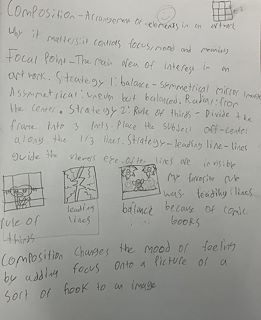 Composition - Arrangement of elements in an artwork
why it matters: it controls focus, mood and meaning
Focal Point - The main area of interest in an
artwork. Strategy 1: balance - symmetrical mirror
Assymmetrical: uneven but balanced. Radial: from
the center. Strategy 2: Rule of thirds - Divide the
frame into 3 Place the subject off-center
along the 1/3 lines. Strategy - leading line - lines
guide the viewers eye. often lines are invisible
my favorite rule
was leading lines
because of comic
books
rule of
thirds
leading
lines
balance
Composition changes the mood or feeling
by adding focus onto a picture or a
sort of hook to an image